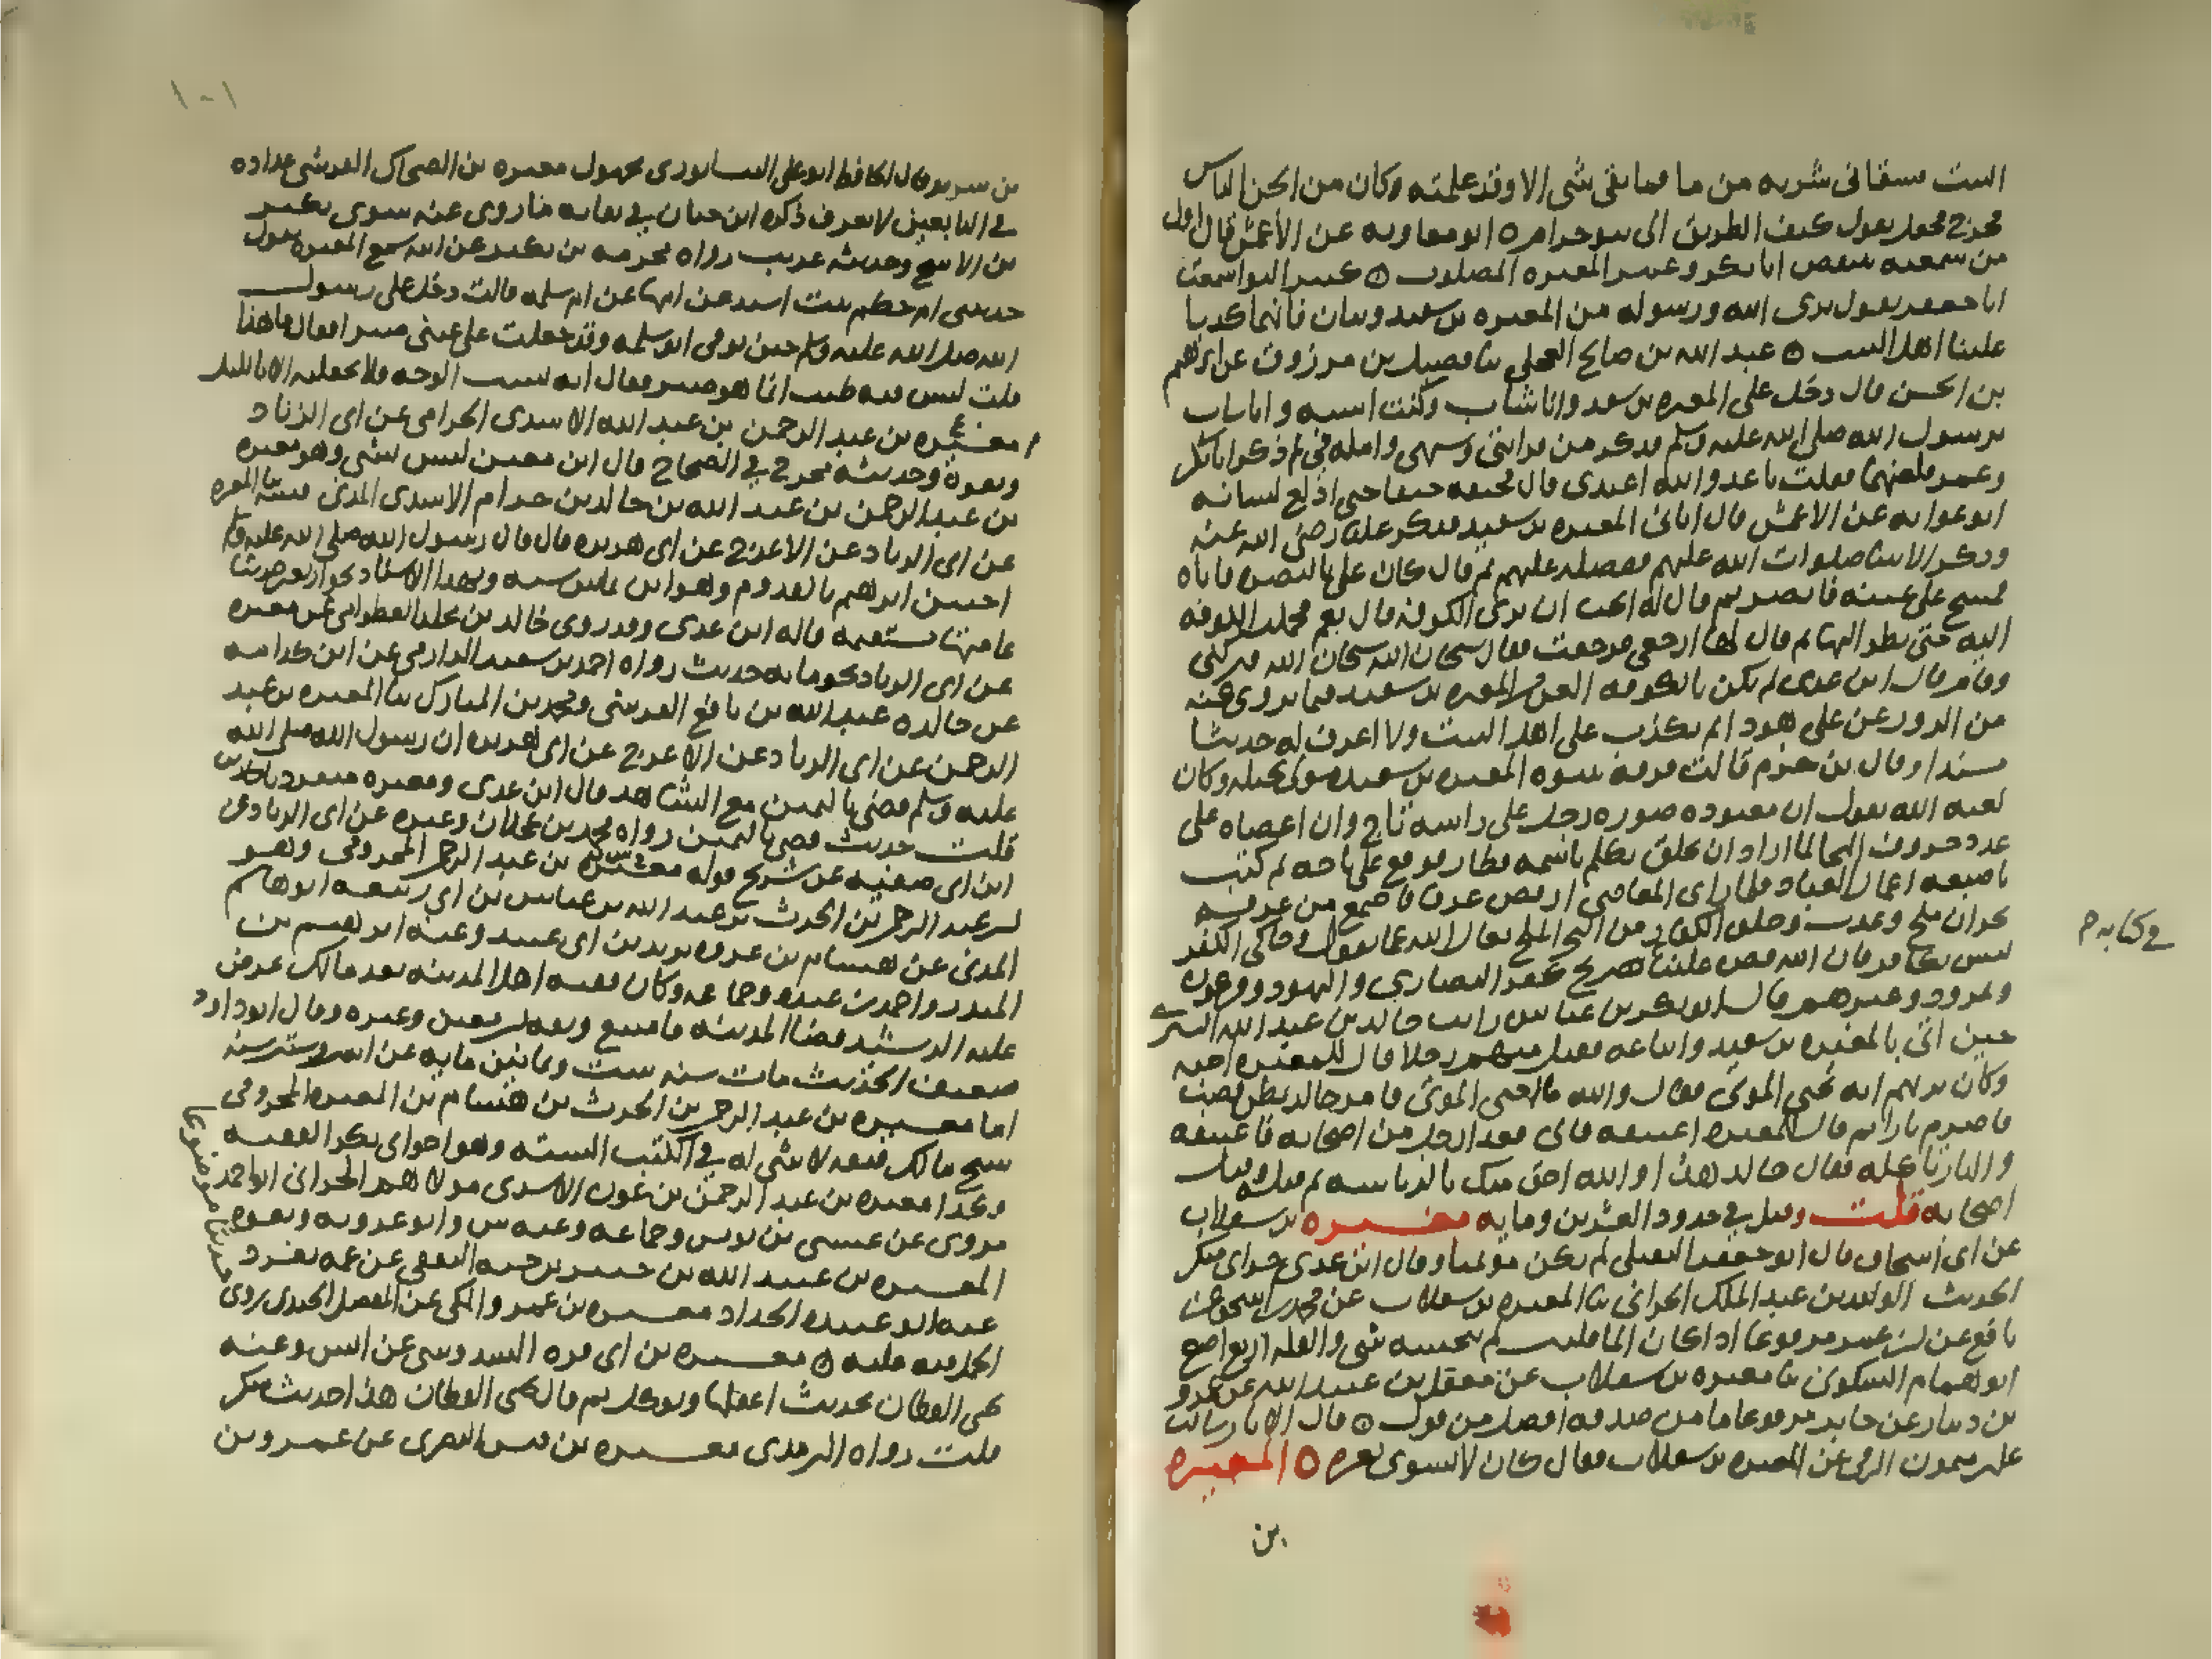 البيت فسقاني شربه من ما فما بقي شي الا وقد علمته وكان من الحن الناس
فخرج فجعل يقول كيف الطريق الى بنو حرامره ابو معاويه عن الاعمش قال اول
من سمعته ينتقص ابا بكر وعمر المغيره المصلوب ۞ كثير النوا سمعت
ابا جعفر يقول برى الله ورسوله من المغيره بن سعيد وبيان فانهما كذبا
علينا اهل البيت ۞ عبد الله بن صالح العجلي ثنا فضيل بن مرزوق عن ابراهيم
بن الحسن قال دخل علي المغيره بن سعيد وانا شاب وكنت اشبه وانا شاب
برسول الله صلى الله عليه وسلم فذكر من قرابتي وشبهي وامله في ثم ذكر ابا بكر
وعمر فلعنهما فقلت يا عدو الله اعندي قال فخنقته خنقا حتى ادلع لسانه
ابو عوانه عن الاعمش قال اتاني المغيره بن سعيد فذكر عليا رضى الله عنه
وذكر الانبيا صلوات الله عليهم ففضله عليهم ثم قال كان علي بالبصره فاتاه
فمسح على عينيه فابصر ثم قال له اتحب ان ترى الكوفه قال نعم فحملت الكوفه
اليه حتى نظر اليها ثم قال لها ارجعي فرجعت فقال سبحان الله سبحان الله فتركني
وقام قال ابن عدى لم يكن بالكوفه العن من المغيره بن سعيد فيما يروى عنه
من الزور عن علي هو دائم يكذب على اهل البيت ولا اعرف له حديثا
مسندا وقال بن حزم قالت فرقة بنبوه المغيره بن سعيد مولى بجيله وكان
لعنه الله يقول ان معبوده صوره رجل على راسه تاج وان اعضاه على
عدد حروف الهجا لما اراد ان يخلق تكلم باسمه فطار فوقع على تاجه ثم كتب
باصبعه اعمال العباد فلما راى المعاصي ارفض عرقا فاجتمع من عرقه
بحران ملح وعذب وخلق الكفار من البحر الملح تعالى الله عما يقول وحاكي الكفر
ليس بكافر فان الله قص علينا صريح كفر النصارى واليهود وفرعون
ونمرود وغيرهم قال ابو بكر بن عياش رايت خالد بن عبد الله القسري
حين اتى بالمغيره بن سعيد واتباعه فقتل منهم رجلا ثم قال للمغيره احيه
وكان يريهم انه يحيي الموتى فقال والله ما احيى الموتى فامر خالد بطن قصب
فاضرم نارا ثم قال للمغيره اعتنقه فابى فعدا رجل من اصحابه فاعتنقه
والنار تاكله فقال خالد هذا والله احق منك بالرياسه ثم قتله وقتل
اصحابه قلت وقتل في حدود العشرين ومايه مغيره بن سقلاب
عن ابن اسحاق قال ابو جعفر النفيلي لم يكن مؤتمنا وقال ابن عدى حراني منكر
الحديث الوليد بن عبد الملك الحراني ثنا المغيره بن سقلاب عن محمد بن اسحق عن
نافع عن ابن عمر مرفوعا اذا كان الما قلتين لم ينجسه شي والقله اربع اصع
ابو همام السكوني ثنا مغيره بن سقلاب عن معقل بن عبيد الله عن عمرو
بن دينار عن جابر مرفوعا ما من صدقه افضل من قول ۞ قال الابار سالت
علي بن ميمون الرقي عن المغيره بن سقلاب فقال كان لا يسوى بعره ۞ المغيره
بن
في كتابه م
١٠١
من سريو قال الحافظ ابو علي النيسابوري مجهول مغيره بن الضحاك القرشي عداده
في التابعين لا يعرف ذكره ابن حبان في ثقاته ما روى عنه سوى بكير
بن الاشج وحديثه غريب رواه مخرمه بن بكير عن ابيه سمع المغيره يقول
حدثتني ام حكيم بنت اسيد عن امها عن ام سلمه قالت دخل على رسول
الله صلى الله عليه وسلم حين توفي ابو سلمه وقد جعلت على عيني صبرا فقال ما هذا
قلت ليس فيه طيب انما هو صبر فقال انه يشب الوجه ولا تجعليه الا بالليل
مغيره بن عبد الرحمن بن عبد الله الاسدى الحزامي عن ابي الزناد
وبعوه وحديثه مخرج في الصحاح قال ابن معين ليس بشي وهو مغيره
بن عبد الرحمن بن عبد الله بن خالد بن حزام الاسدى المدني قتيبه ثنا المغيره
عن ابي الزناد عن الاعرج عن ابي هريره قال قال رسول الله صلى الله عليه وسلم
اختتن ابراهيم بالقدوم وهو ابن ثمانين سنه وبهذا الاسناد نحو اربعين حديثا
عامتها مستقيمه قاله ابن عدى وقد روى خالد بن مخلد القطواني عن مغيره
عن ابي الزناد نحو مايه حديث رواه احمد بن سعيد الدارمي عن ابن كرامه
عن خالده عبد الله بن نافع القرشي ومحمد بن المبارك ثنا المغيره بن عبد
الرحمن عن ابي الزناد عن الاعرج عن ابي هريره ان رسول الله صلى الله
عليه وسلم قضى باليمين مع الشاهد قال ابن عدى ومغيره ينفرد باحاديث
قلت حديث قضى باليمين رواه محمد بن عجلان وغيره عن ابي الزناد عن
ابن ابي صفيه عن شريح قوله مغيره بن عبد الرحمن المخزومي وهو
بن عبد الرحمن بن الحرث بن عبد الله بن عياش بن ابي ربيعه ابو هاشم
المدني عن هشام بن عروه يزيد بن ابي عبيد وعنه ابراهيم بن
المنذر واحمد بن عبده وجماعه وكان فقيه اهل المدينه بعد مالك عرض
عليه الرشيد قضا المدينه فامتنع وثقه ابن معين وغيره وقال ابو داود
ضعيف الحديث مات سنه ست وثمانين مايه عن سنه
اما مغيره بن عبد الرحمن بن الحرث بن هشام بن المغيره المخزومي
شيخ مالك فثقه لا شي له في الكتب السته وهو اخو ابي بكر الفقيه
وكذا مغيره بن عبد الرحمن بن عون الاسدى مولاهم الحراني ابو احمد
يروى عن عيسى بن يونس وجماعه وعنه س وابو عروبه وثقوه
المغيره بن عبيد الله بن جبير بن حيه الثقفي عن عمه تفرد
عنه ابو عبيده الحداد مغيره بن عمرو المكي عن المفضل الجندى روى
حديثا موضوعا
الحمل فيه عليه ۞ مغيره بن ابي قره السدوسي عن انس وعنه
يحيى القطان بحديث اعقلها وتوكل ثم قال يحيى القطان هذا حديث منكر
قلت رواه الترمذى مغيره بن قيس البصرى عن عمرو بن